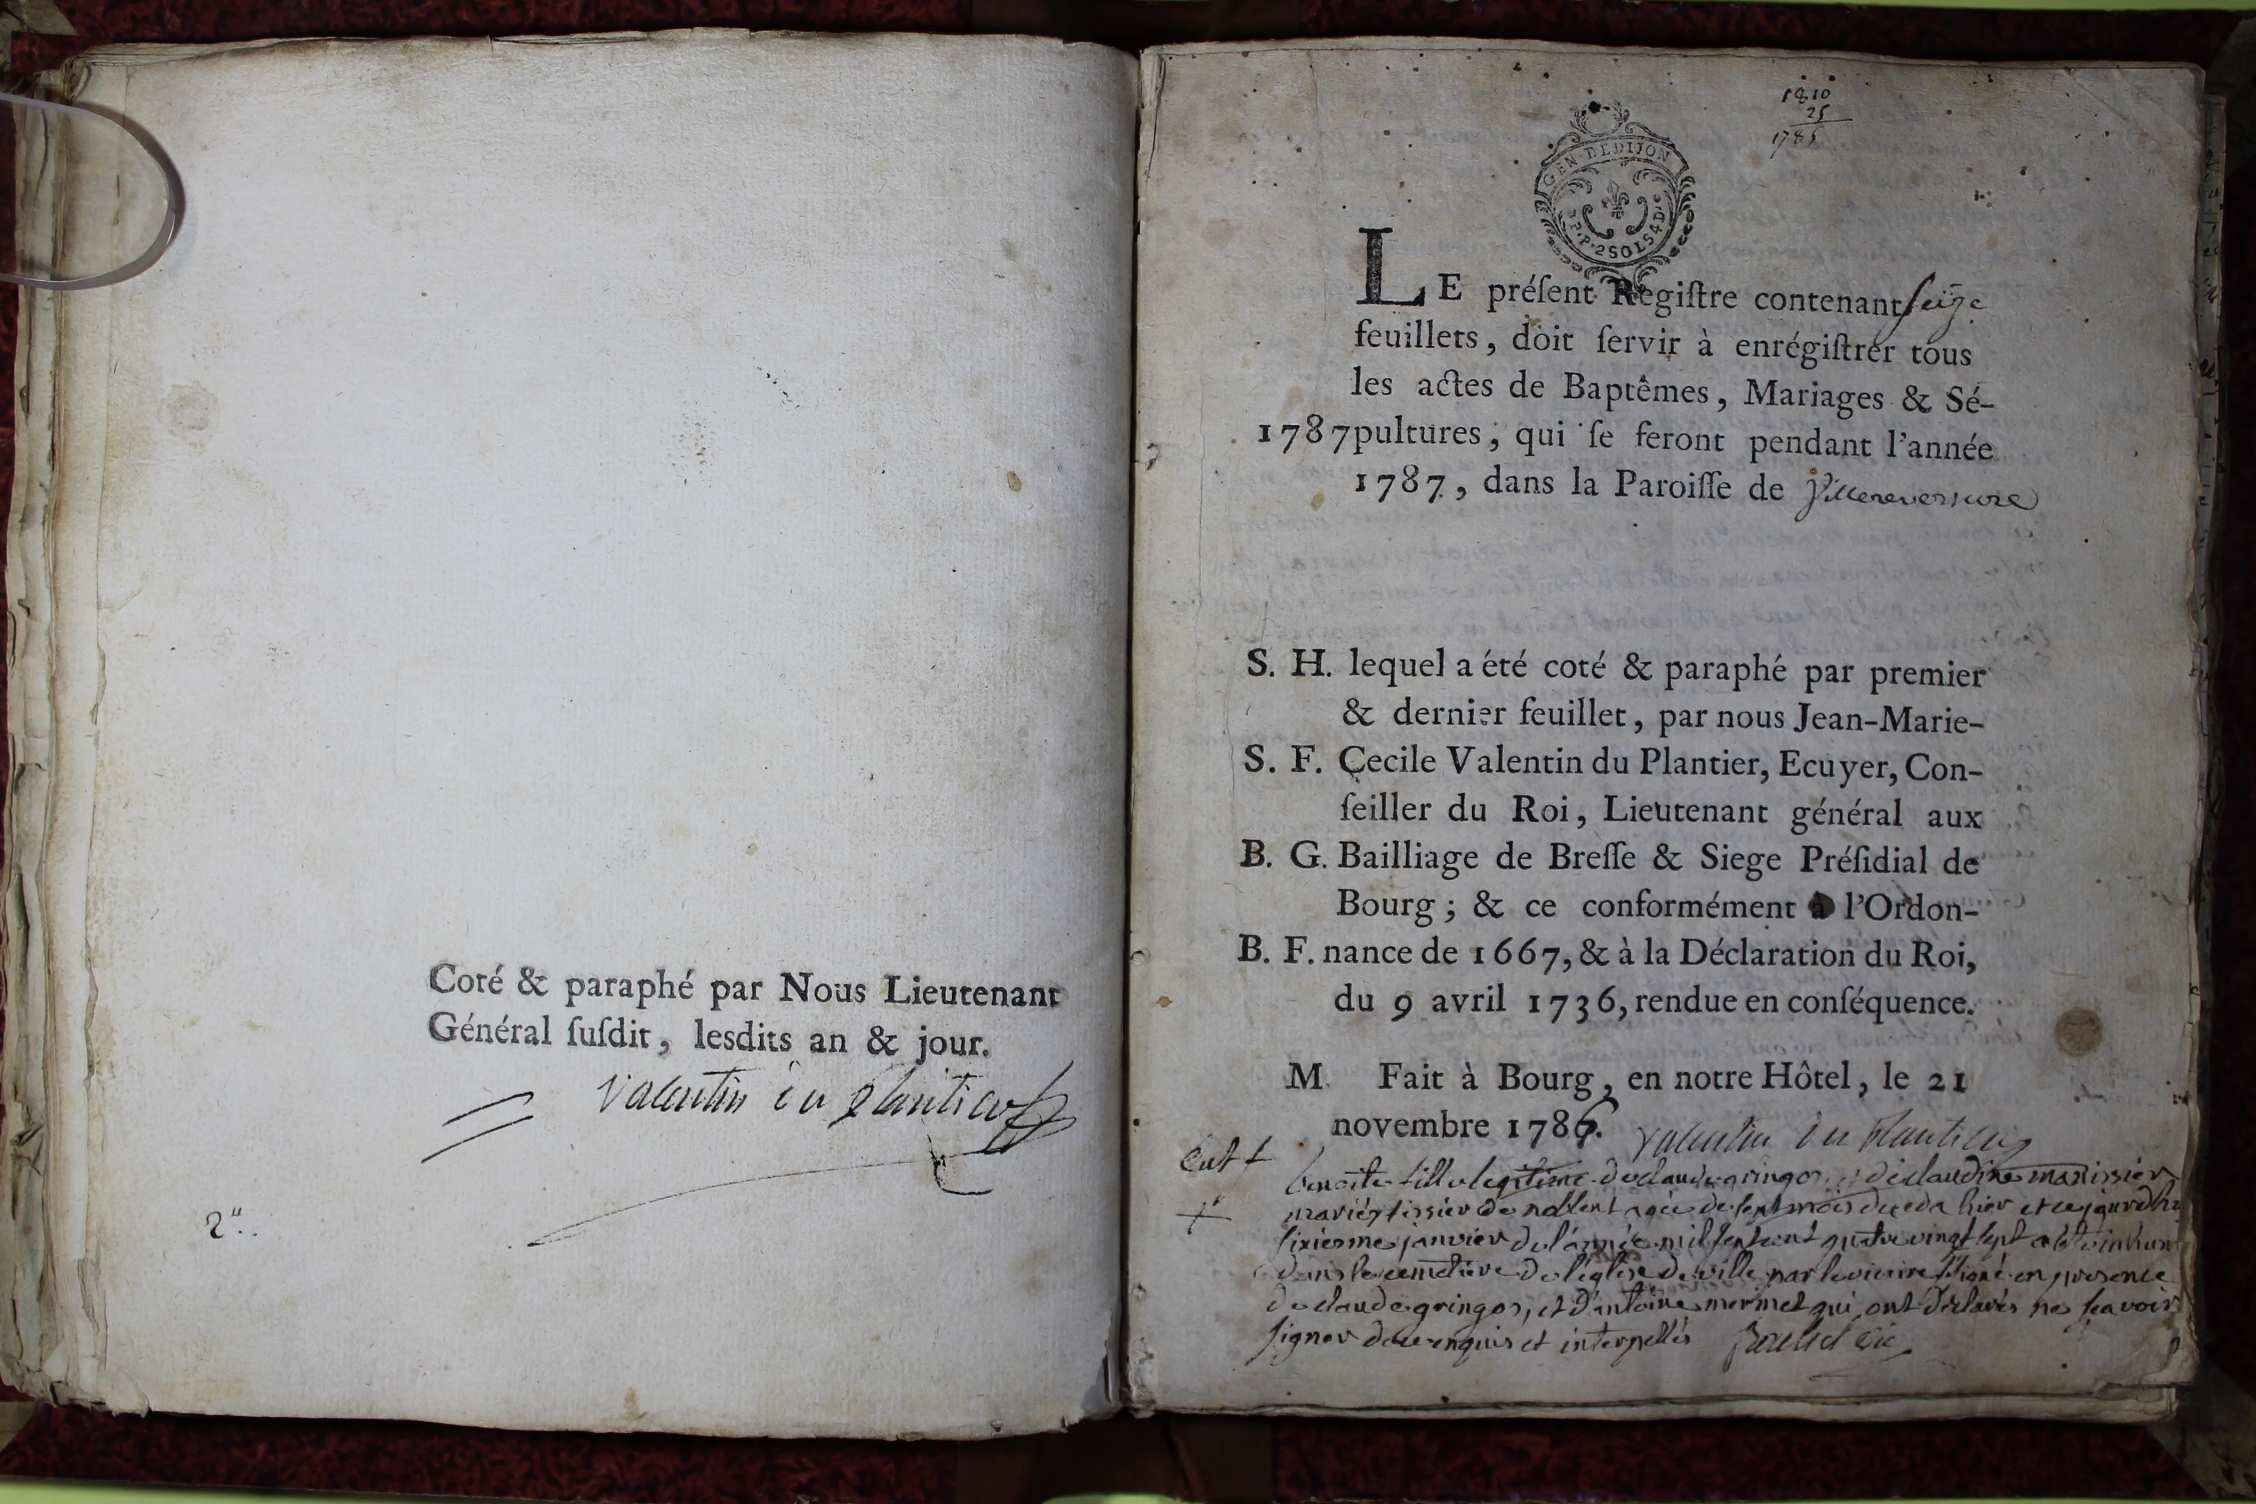 Coté & paraphé par Nous Lieutenant
Général ſuſdit, lesdits an & jour.
Valentin du Plantier
2"..
1810
25
1785
GEN·DE DIJON
P.P. 2 SOLS 4 D.
LE préſent Regiſtre contenant ſeize
feuillets, doit ſervir à enrégiſtrer tous
les actes de Baptêmes, Mariages & Sé-
1787 pultures, qui ſe feront pendant l'année
1787, dans la Paroiſſe de Villereversure
S. H. lequel a été coté & paraphé par premier
& dernier feuillet, par nous Jean-Marie-
S. F. Cecile Valentin du Plantier, Ecuyer, Con-
ſeiller du Roi, Lieutenant général aux
B. G. Bailliage de Breſſe & Siege Préſidial de
Bourg; & ce conformément à l'Ordon-
B. F. nance de 1667, & à la Déclaration du Roi,
du 9 avril 1736, rendue en conſéquence.
M. Fait à Bourg, en notre Hôtel, le 21
novembre 1786. Valentin du Plantier
benoite fille legitime de claude gringoz et de claudine
mariés tissier de noblent agée de sept mois decedа hier et ce jourdhu
sixiesme janvier de l'année mil sept cent quatre vingt sept a été inhum
dans le cemetiere de l'église de ville par le vicaire soussigné en presence
de claude gringoz, et d'antoine mermet qui ont declarés ne scavoir
signer de ce enquis et interpellés